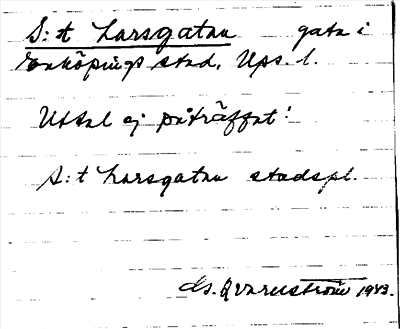 S:t Larsgatan gata i
Enköpings stad, Ups. l.
Uttal ej påträffat!
S:t Larsgatan stadspl.
Qvarnström 1943.